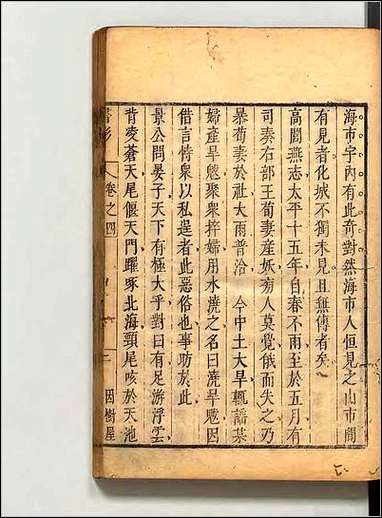 海市宇內有此奇對然海市人但見之山市間
有見者化城不獨未見且無傳者矣
高閭燕志太平十五年自春不雨至於五月有
司奏右部王荀妻產妖旁人莫覺俄而失之乃
暴荀妻於社大雨普洽　今中土大旱輒謠某
婦產旱魃聚眾捽婦用水澆之名曰澆旱魃因
借言恃眾以私逞者此惡俗也事昉於此
景公問晏子天下有極大乎對曰有足游浮雲
背凌蒼天尾偃天門躍啄北海頸尾咳於天池
書影
卷之四
因樹屋